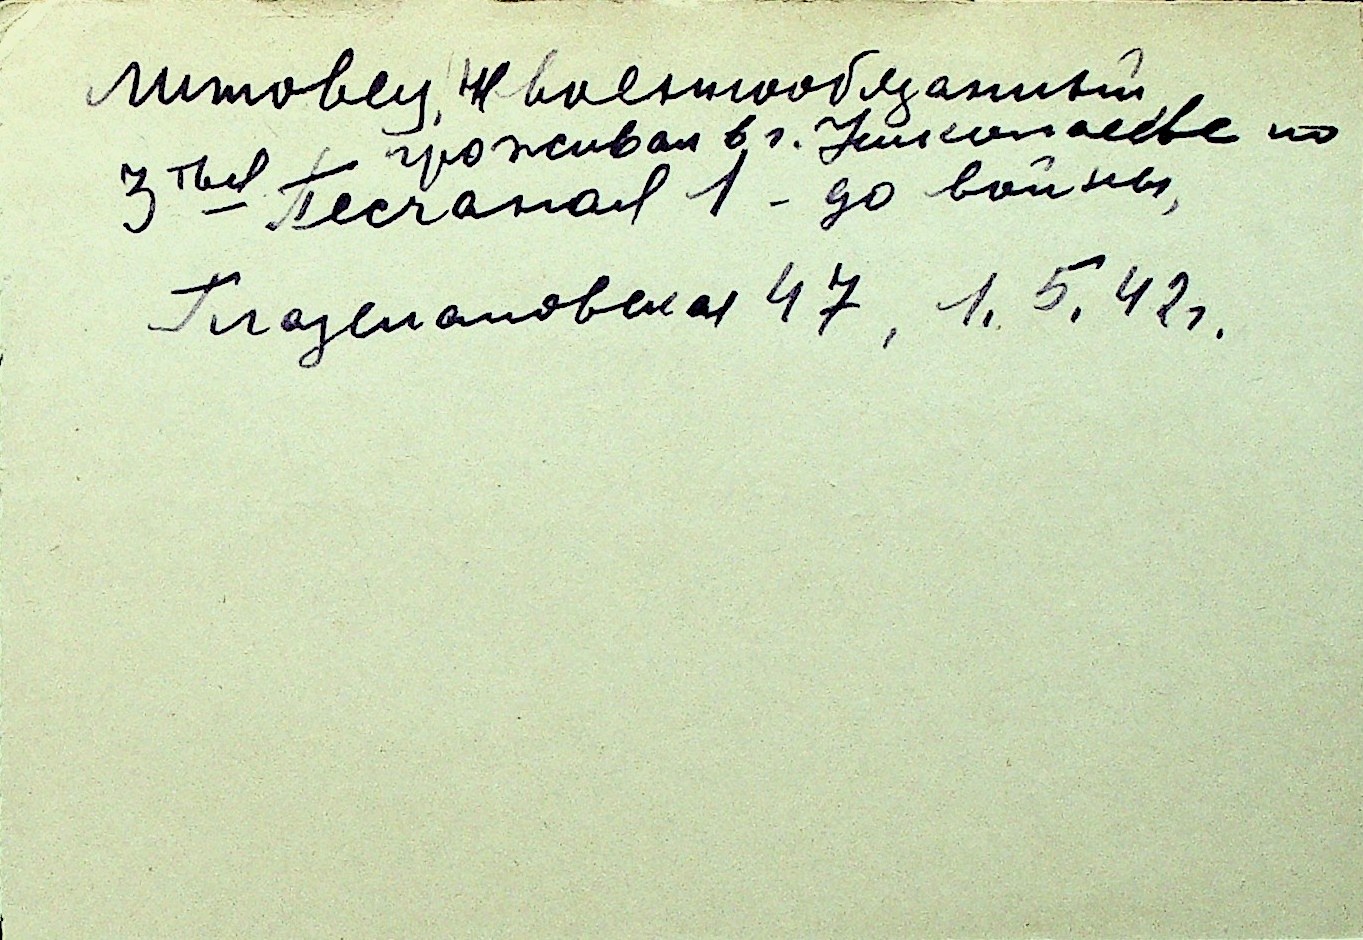 Литовец, военнообязанный,
проживал в г. Николаеве по
3тья Песчаная 1 - до войны,
Глазенаповская 47, 1.5.42г.